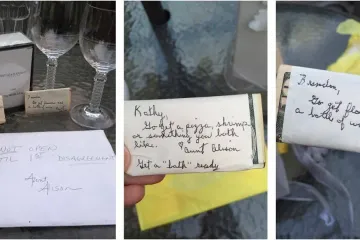 DON'T OPEN
UNTIL 1ST DISAGREEMENT
Aunt
Alison
Kathy,
Go get a pizza, shrimp
or something you both
like.
Aunt Alison
Get a "bath" ready
Brandon,
Go get flo
a bottle of w